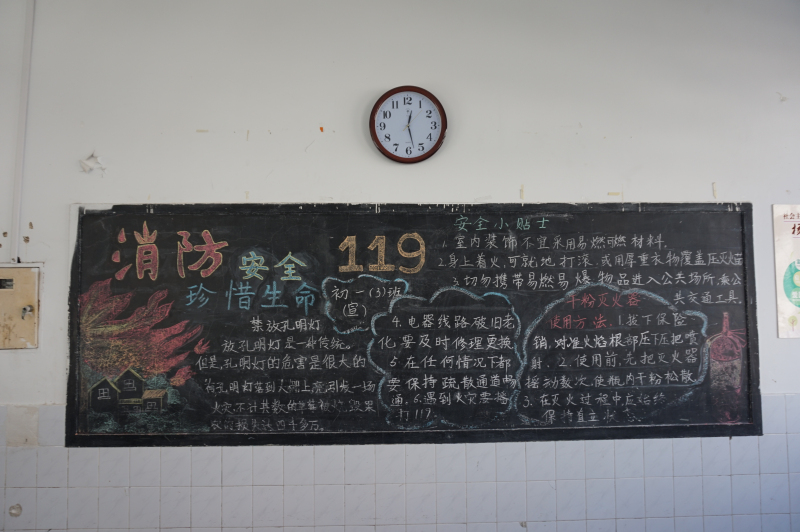 12
1
2
3
4
5
6
7
8
9
10
11
消防
安全
119
珍惜生命
初一(3)班
(宣)
禁放孔明灯
放孔明灯是一种传统。
但是,孔明灯的危害是很大的
有孔明灯落到人
火灾,不计其数的
四千多万。
安全小贴士
1.室内装饰不宜采用易燃可燃材料.
2.身上着火,可就地打滚,或用厚重衣物覆盖压灭火苗
3.切勿携带易燃易爆物品进入公共场所,乘公
共交通工具
4.电器线路破旧老
化,要及时修理更换
5.在任何情况下都
要保持疏散通道畅
通,6.遇到火灾要拨
打119.
干粉灭火器
使用方法.1.拔下保险
销,对准火焰根部压下把喷
射.2.使用前,先把灭火器
摇动数次,使瓶内干粉松散
3.在灭火过程中应始终
保持直立状态
社会主